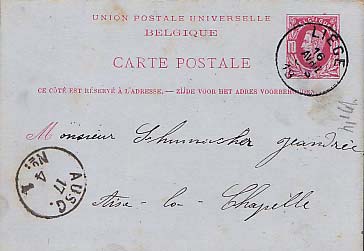 UNION POSTALE UNIVERSELLE
BELGIQUE
CARTE POSTALE
CE CÔTÉ EST RÉSERVÉ À L'ADRESSE. — ZIJDE VOOR HET ADRES VOORBEHOUDEN
LIEGE
16
AUSG.
17
4
No. 1
Monsieur Schumacher
Aix-la-Chapelle